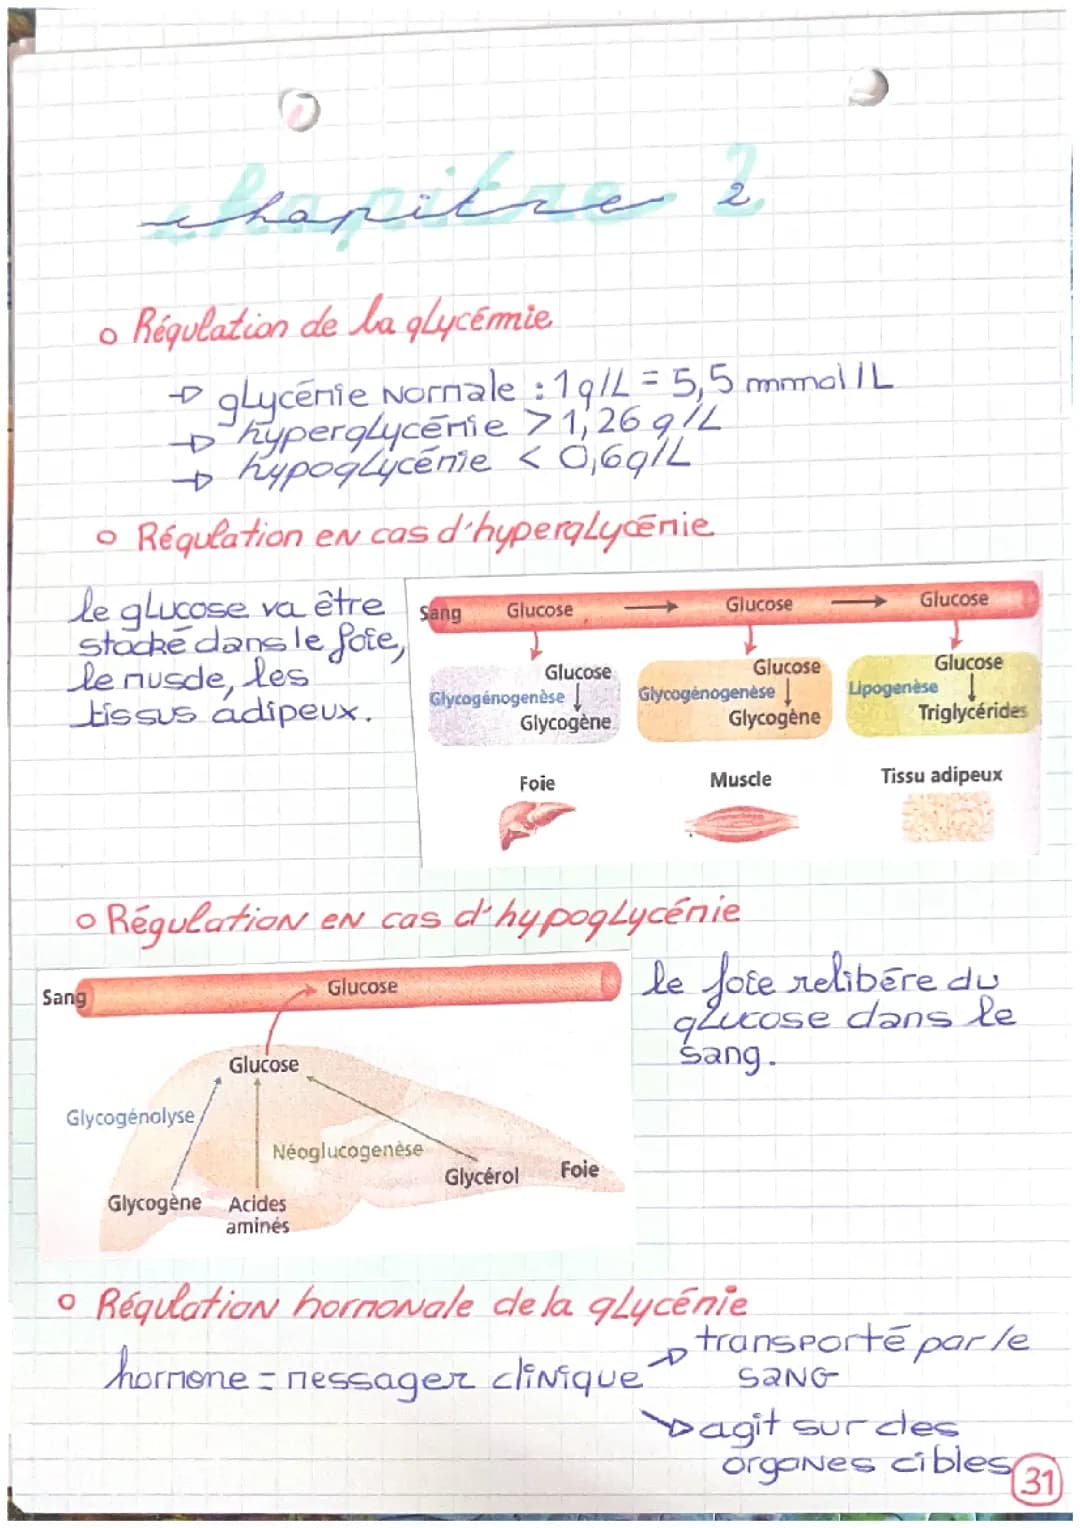 chapitre 2
o Régulation de la glycémie
→ glycémie normale : 1g/L = 5,5 mmol/L
→ hyperglycémie > 1,26 g/L
→ hypoglycémie < 0,6g/L
o Régulation en cas d'hyperglycémie
le glucose va être
stocké dans le foie,
le muscle, les
tissus adipeux.
Sang Glucose → Glucose → Glucose
Glucose Glucose Glucose
Glycogénogenèse Glycogénogenèse Lipogenèse
Glycogène Glycogène Triglycérides
Foie Muscle Tissu adipeux
o Régulation en cas d'hypoglycémie
Sang Glucose
Glucose
Glycogénolyse
Néoglucogenèse
Glycérol Foie
Glycogène Acides
aminés
le foie relibére du
glucose dans le
sang.
o Régulation hormonale de la glycémie
hormone = messager clinique
→ transporté par le
sang
→ agit sur des
organes cibles
31